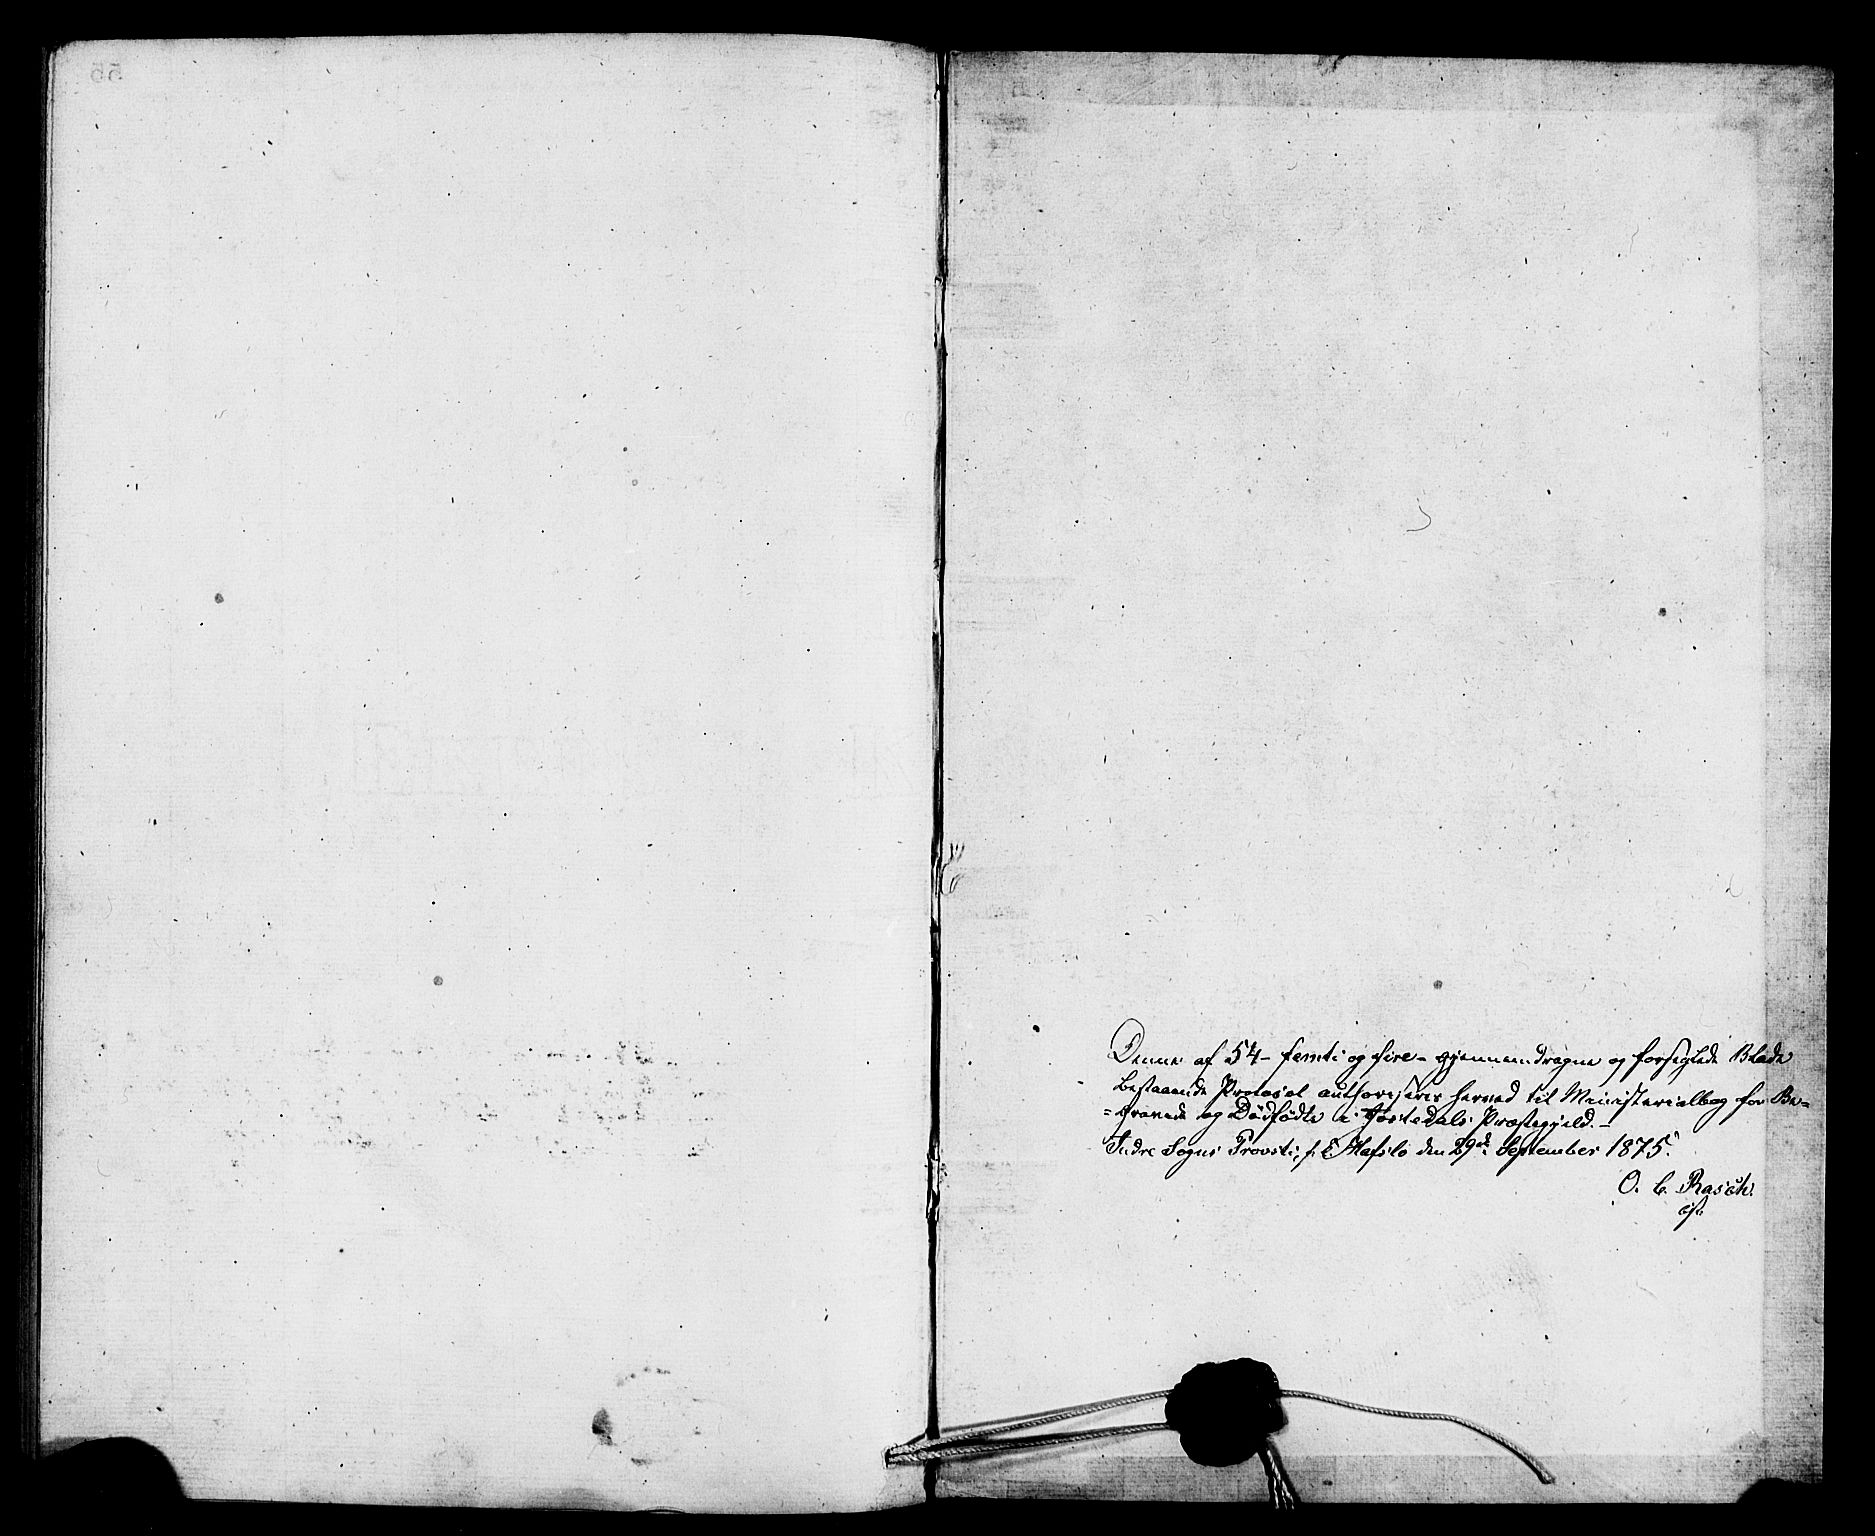 Denne af 54 - femti og fire - gjennemdragne og forseglede Blade
bestaaende Protocol authoriseres herved til Ministerialbog for Be=
=gravede og Dødfødte i Jostedals Præstegjeld. -
Indre Sogns Provsti, Hafslo den 29de September 1875.
O. C. Rasch.
cst.